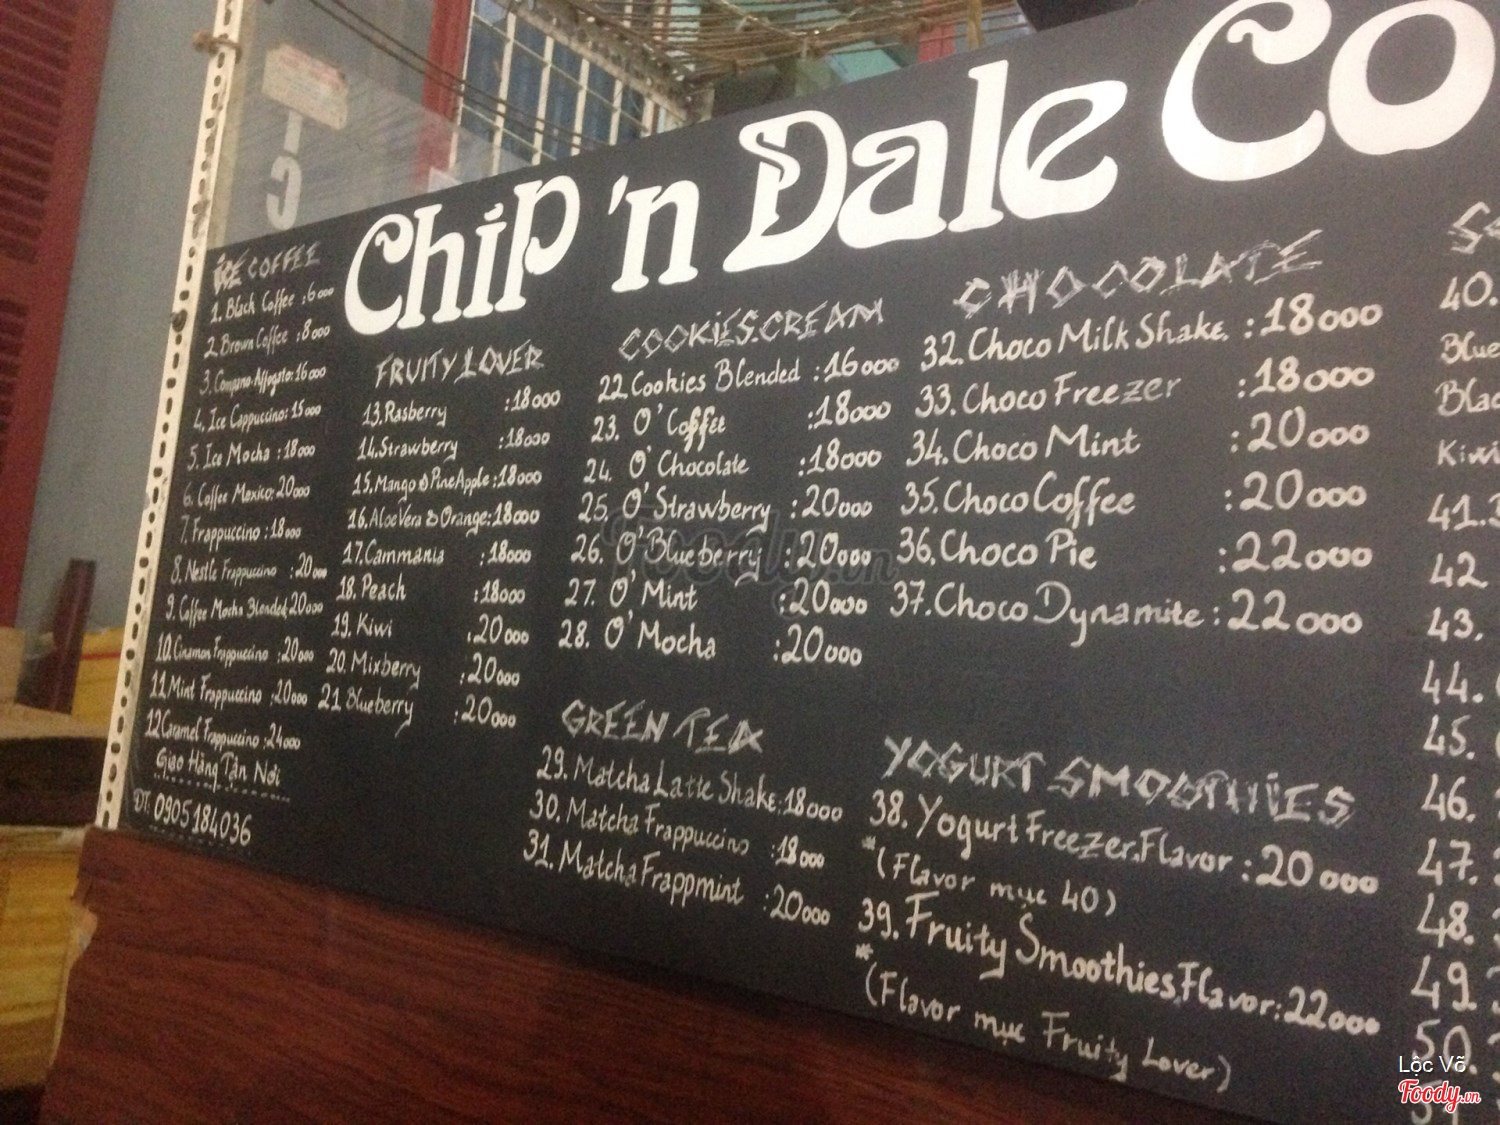 Chip 'n Dale Co
ICE COFFEE
1. Black Coffee :6000
2. Brown Coffee :8000
3. Campana Affogato: 16000
4. Ice Cappuccino: 15000
5. Ice Mocha :18000
6. Coffee Mexico: 20000
7. Frappuccino :18000
8. Nestle Frappuccino :20000
9. Coffee Mocha Blended: 20000
10. Cinamon Frappuccino :20000
11 Mint Frappuccino :20000
12 Caramel Frappuccino :24000
Giao Hàng Tận Nơi
ĐT: 0905184036
FRUITY LOVER
13. Rasberry :18000
14. Strawberry :18000
15. Mango & PineApple :18000
16. Aloe Vera & Orange: 18000
17. Cammania :18000
18. Peach :18000
19. Kiwi :20000
20. Mixberry :20000
21 Blueberry :20000
COOKIES.CREAM
22 Cookies Blended :16000
23. O' Coffee :18000
24. O' Chocolate :18000
25. O' Strawberry :20000
26. O' Blueberry :20000
27. O' Mint :20000
28. O' Mocha :20000
GREEN TEA
29. Matcha Latte Shake :18000
30. Matcha Frappuccino :18000
31. Matcha Frappmint :20000
CHOCOLATE
32. Choco Milk Shake. :18000
33. Choco Freezer :18000
34. Choco Mint :20000
35. Choco Coffee :20000
36. Choco Pie :22000
37. Choco Dynamite :22000
YOGURT SMOOTHIES
38. Yogurt Freezer. Flavor :20000
*(Flavor mục 40)
39. Fruity Smoothies, Flavor: 22000
*(Flavor mục Fruity Lover)
40.
Blue
Blac
Kiwi
41.
42
43.
44.
45.
46.
47.
48.
49
50.
Foody.vn
Lộc Võ
Foody.vn